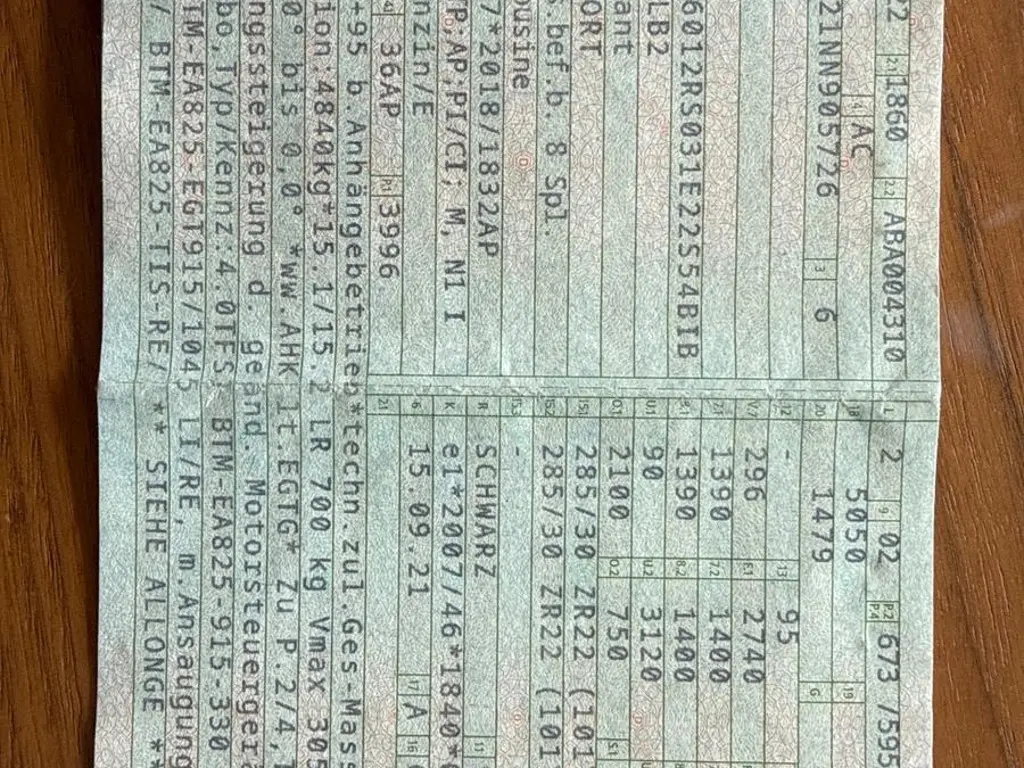 22 2.1 1860 2.2 ABA004310 L 2 9 02 P.2 P.4 673 /595
4 AC 18 5050 19
21NN905726 3 6 20 1479 G
12 - 13 95
V.7 296 F.1 2740
7.1 1390 7.2 1400
6012RS031E22S54BIB 8.1 1390 8.2 1400
LB2 U.1 90 U.2 3120
ant O.1 2100 O.2 750 S.1
ORT 15.1 285/30 ZR22 (101
.bef.b. 8 Spl. 15.2 285/30 ZR22 (101
ousine 15.3 -
7*2018/1832AP R SCHWARZ 11
P;AP;PI/CI; M, N1 I K e1*2007/46*1840*
nzin/E 6 15.09.21 17 A 16
36AP P.1 3996 21
+95 b.Anhängebetrieb*techn.zul.Ges-Mas
ion:4840kg*15.1/15.2 LR 700 kg Vmax 305
0° bis 0,0° *ww.AHK lt.EGTG* Zu P.2/4,
ngssteigerung d. geänd. Motorsteuerger
bo,Typ/Kennz:4.0TFSI BTM-EA825-915-330
TM-EA825-EGT915/1045 LI/RE, m.Ansaugung
/ BTM-EA825-TIS-RE/ ** SIEHE ALLONGE **